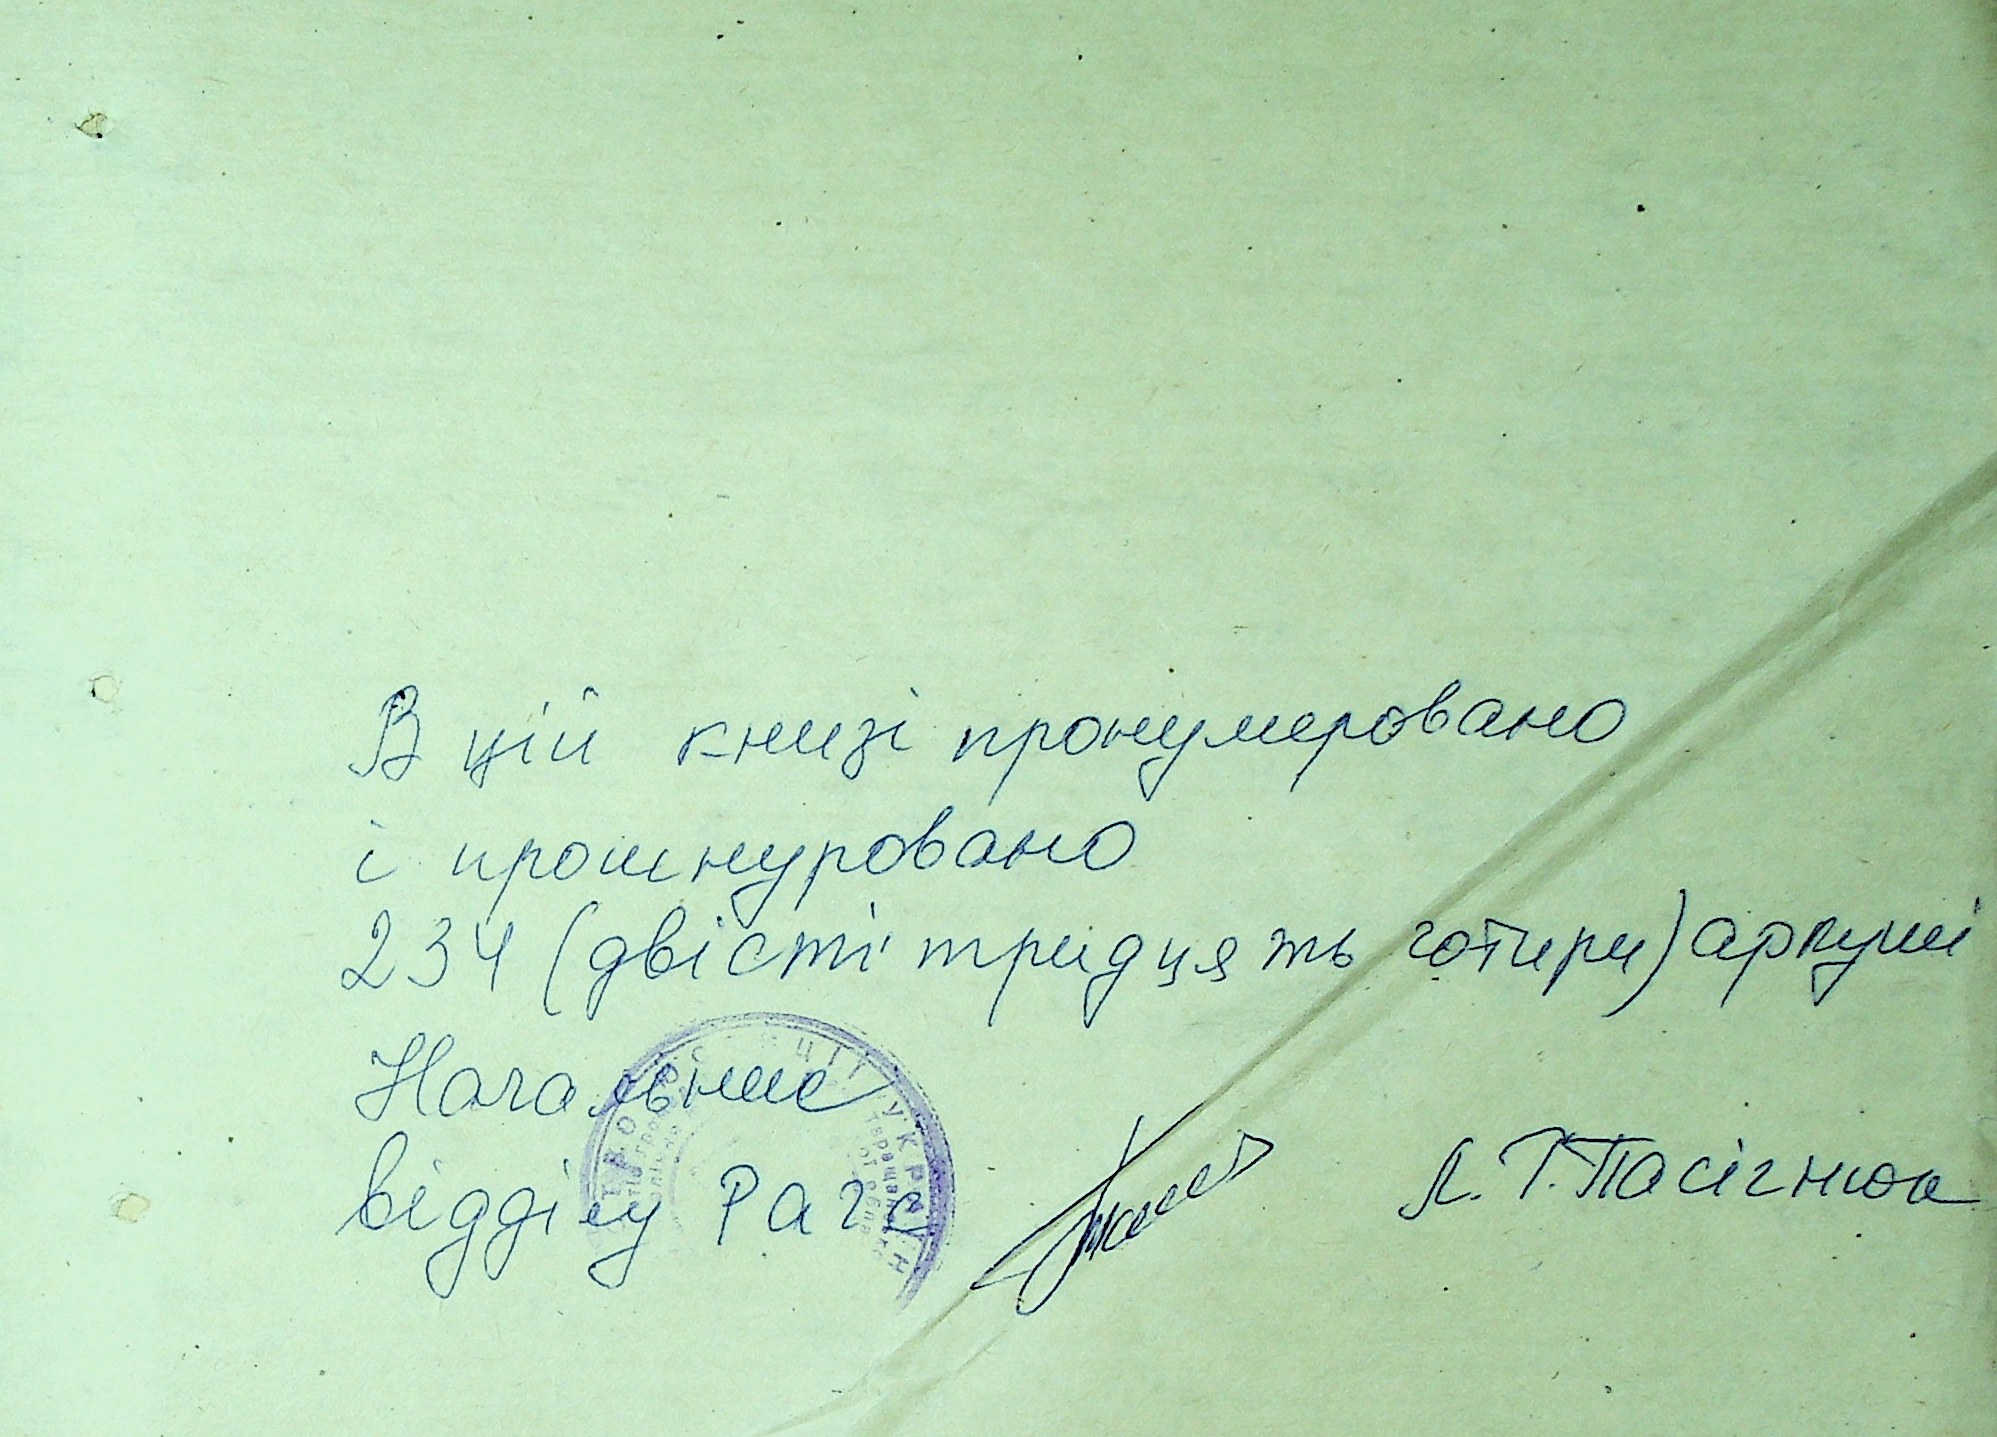 В цій книзі пронумеровано
і прошнуровано
234 (двісті тридцять чотири) аркуші
Начальник
відділу Рагс
Л. Т. Пасічнюк